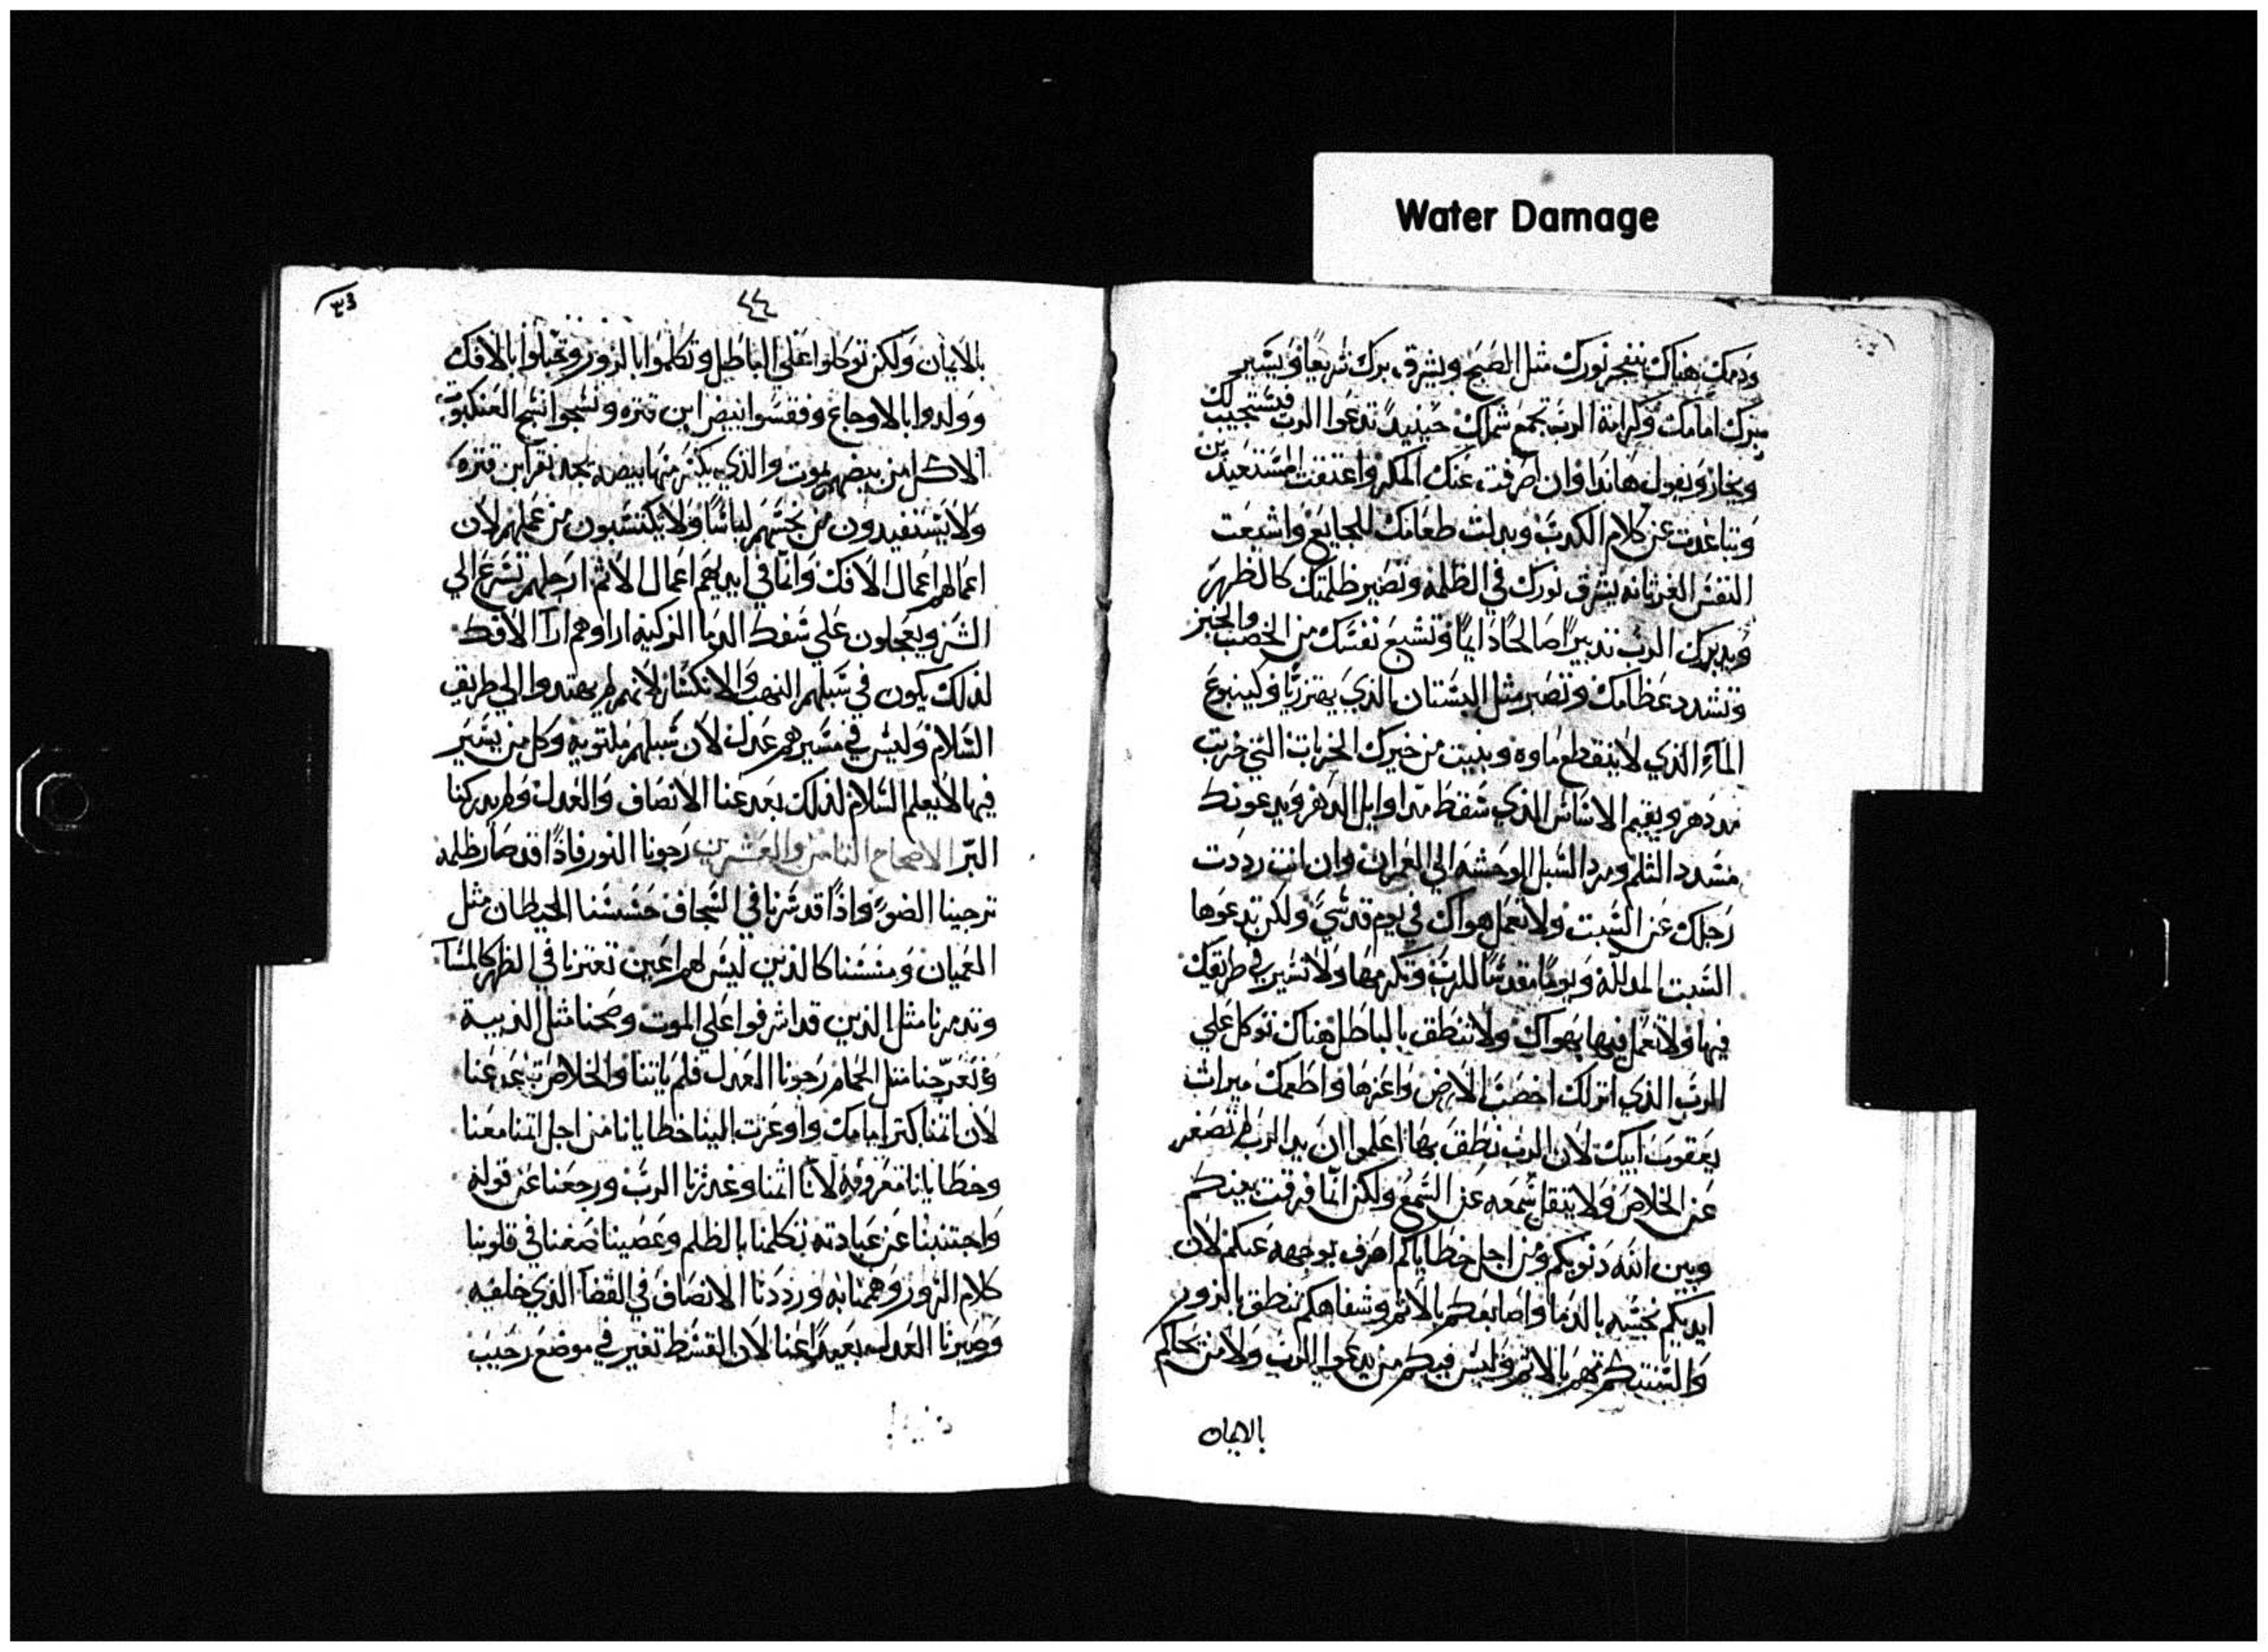 Water Damage
ودمك هناك ينفجر نورك مثل الصبح ويشرق برك سريعًا ويسير
برك امامك وكرامة الرب تجمع شملك حينيدٍ تدعوا الرب فيستجيب لك
ويقول هانذا وان صرفت عنك المكر واعتقت المستعبدين
وتباعدت عن كلام الكدب وبدلت طعامك للجايع واشبعت
النفس الغرثانه يشرق نورك في الظلمه وتصير ظلمتك كالظهر
ويدبرك الرب تدبيرًا صالحًا دايمًا وتشبع نفسك من الخصب والخبز
وتشدد عظامك وتصير مثل البستان الذي يهتز ريًا وكينبوع
المآء الذي لا ينقطع ماوه ويبنيت من خيرك الخربات التي خربت
مند دهر ويقيم الاساس الذي سقط مند اوايل الدهر ويدعونك
مشدد الثلم ومرد السبل الوحشه الي العمران وان انت رددت
رجلك عن السبت ولا تعمل هواك في يوم قدسي ولكن تدعوها
السبت المدلله ويومًا مقدسًا للرب وتكرمها ولا تسير في طريقك
فيها ولا تعمل فيها بهواك ولا تنطق بالباطل هناك توكل علي
الرب الذي انزلك اخصب الارض واعزها واطعمك ميراث
يعقوب ابيك لان الرب نطق بها اعلموا ان يد الرب لم تصغر
عن الخلاص ولا يثقل سمعه عن السمع ولكن انما فرقت بينكم
وبين الله دنوبكم ومن اجل خطاياكم اصرف بوجهه عنكم لان
ايديكم نجسه بالدما واصابعكم بالاثم وشفاهكم تنطق بالزور
والسنتكم تهمر بالاثم وليس فيكم من يدعوا الرب ولا من يحاكم
بالايمان
٤٤
بالايمان ولكن توكلوا علي الباطل وتكلموا بالزور وحبلوا بالافك
وولدوا بالاوجاع وفقسوا بيض ابن قتره ونسجوا نسج العنكبوت
الاكل من بيضهم يموت والذي يكسر منها بيضه يجد نقر ابن قتره
ولا يستفيدون من نسجهم لباسًا ولا يكتسبون من عملهم لان
اعمالهم اعمال الافك وانما في ايديهم اعمال الاثم ارجلهم تسرع الي
الشر ويعجلون علي سفك الدما الزكيه اراوهم ارآ الافك
لذلك يكون في سبلهم النهب والانكسار لانهم لم يهتدوا الي طريق
السلام وليس في مسيرهم عدل لان سبلهم ملتويه وكل من يسير
فيها لا يعلم السلام لذلك بعد عنا الانصاف والعدل ولم يدركنا
البر الاصحاح الثامن والعشرين رجونا النور فاذًا قد صار ظلمه
ترجينا الضوء واذًا قد سرنا في السجاف حسسنا الحيطان مثل
العميان ومسسنا كالذين ليس لهم اعين تعتزنا في الظهر كالمسآ
وتدمرنا مثل الذين قد اشرفوا علي الموت وضجنا مثل الذيبة
وتعرجنا مثل الحمام رجونا العدل فلم ياتنا والخلاص تبعد عنا
لان اثمنا كتر امامك واوعزت الينا خطايانا من اجل اثمنا معنا
وخطايانا معروفه لانا اثمنا وغدرنا الرب ورجعنا عن قوله
واجتنبنا عن عبادته تكلمنا بالظلم وعصينا ضمنا في قلوبنا
كلام الزور وهممنا به ورددنا الانصاف في القضآ الذي خلفه
وصيرنا العدل بعيدًا عنا لان القسط تغير في موضع رحيب